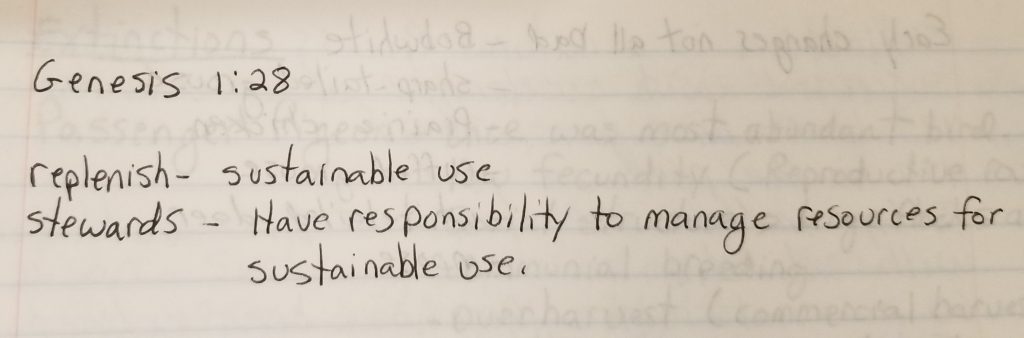 Genesis 1:28
replenish- sustainable use
stewards - Have responsibility to manage resources for
sustainable use.